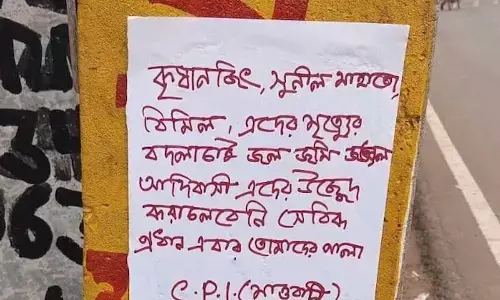 কৃষানজিৎ, সুনীল মাহাতো,
বিমিল, এদের মৃত্যুের
বদলাচাই জল জমি জঙ্গল
আদিবাসী এদের উচ্ছেদ
করাচলবেনি সেবিক
প্রধান এবার তোমাদের পালা
C.P.I.(মাওবাদী)